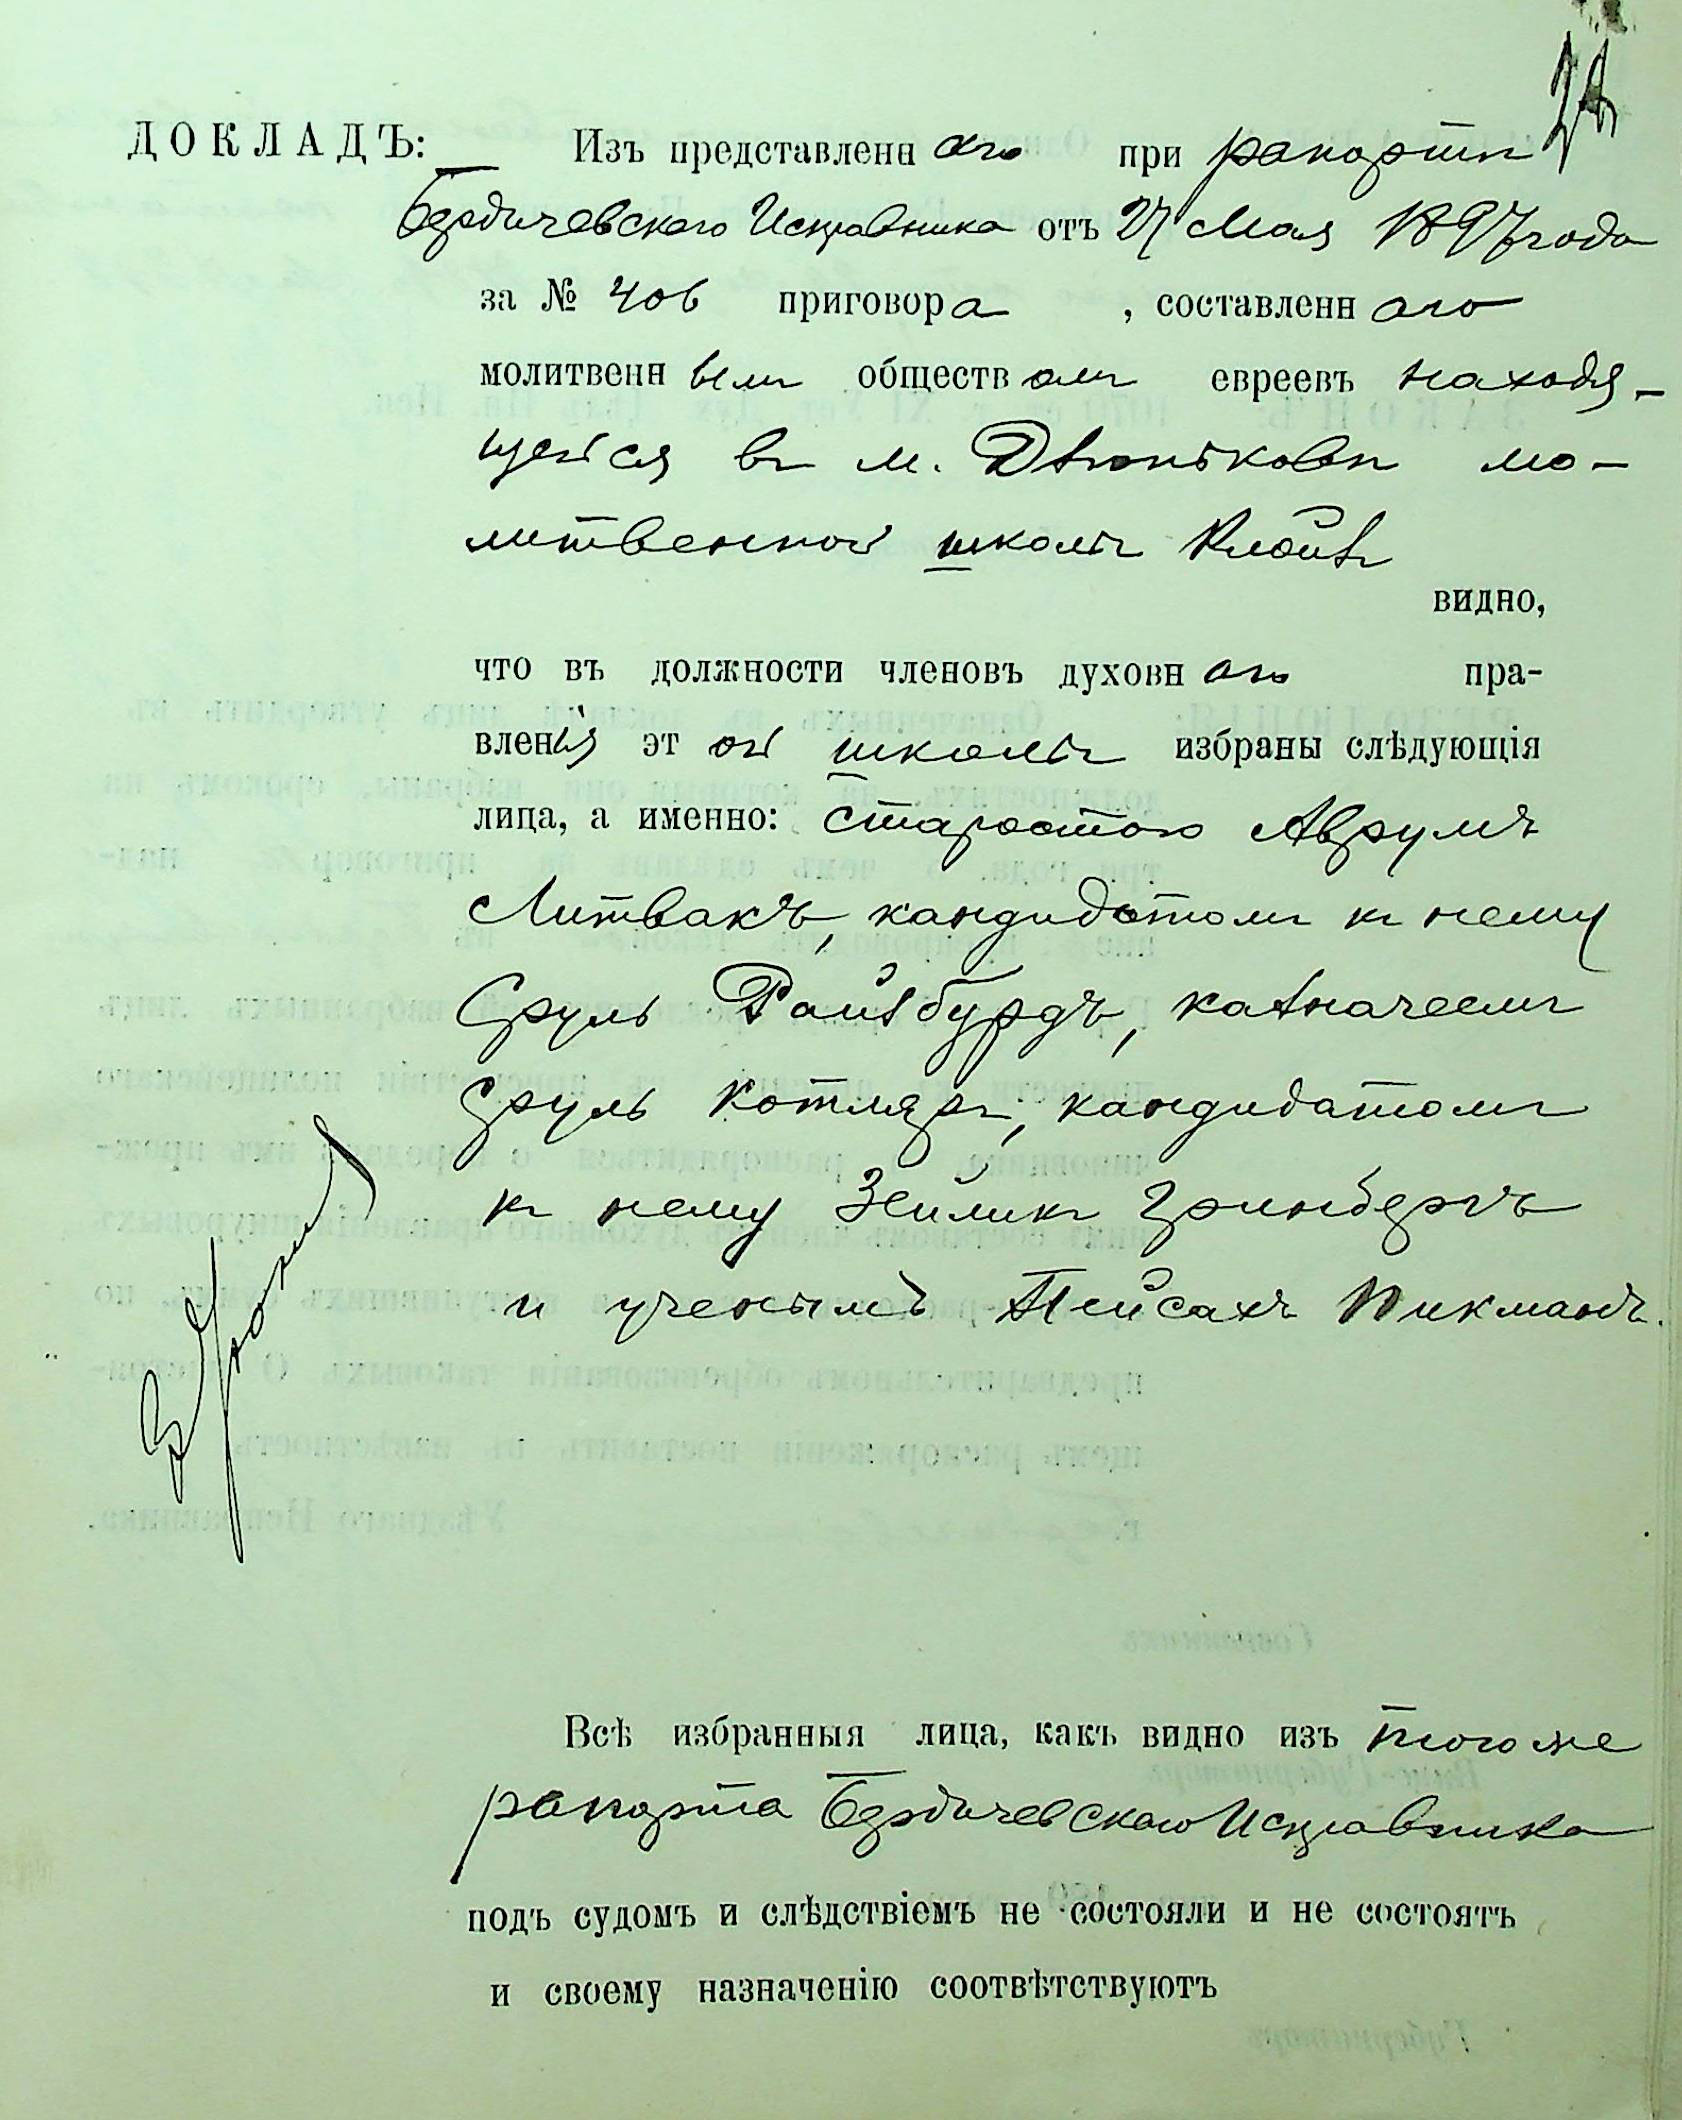 ДОКЛАДЪ: Изъ представленнаго при рапортѣ
Бердичевскаго Исправника отъ 27 Мая 1897 года
за № 406 приговора, составленнаго
молитвеннымъ обществомъ евреевъ находя-
щейся въ м. Дзюньковѣ мо-
литвенной школы Клойзъ
видно,
что въ должности членовъ духовнаго пра-
вленія этой школы избраны слѣдующія
лица, а именно: старостою Аврумъ
Литвакъ, кандидатомъ къ нему
Сруль Райзбурдъ, казначеемъ
Сруль Котляръ, кандидатомъ
къ нему Зейликъ Гринбергъ
и ученымъ Пейсахъ Пикманъ.
Всѣ избранныя лица, какъ видно изъ того же
рапорта Бердичевскаго Исправника
подъ судомъ и слѣдствіемъ не состояли и не состоятъ
и своему назначенію соотвѣтствуютъ